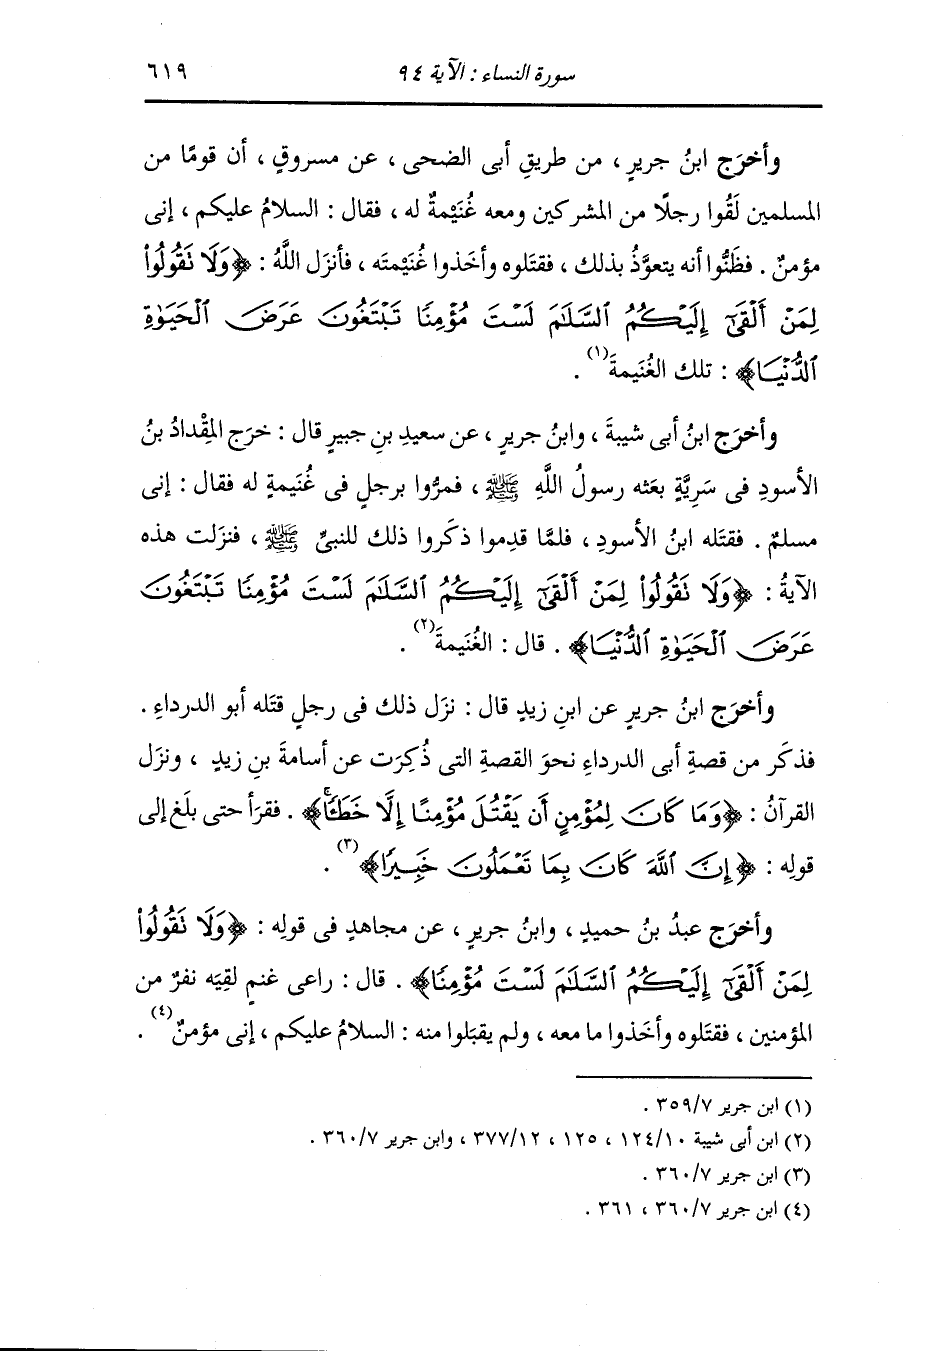 سورة النساء : الآية ٩٤ ٦١٩
وأخرَج ابنُ جريرٍ ، من طريقِ أبى الضحى ، عن مسروقٍ ، أن قومًا من
المسلمين لَقُوا رجلًا من المشركين ومعه غُنَيْمةٌ له ، فقال : السلامُ عليكم ، إنى
مؤمنٌ . فظَنُّوا أنه يتعوَّذُ بذلك ، فقتَلوه وأخَذوا غُنَيْمتَه ، فأنزَل اللَّهُ : ﴿وَلَا نَقُولُواْ
لِمَنْ أَلْقَىٰٓ إِلَيْكُمُ ٱلسَّلَٰمَ لَسْتَ مُؤْمِنًا تَبْتَغُونَ عَرَضَ ٱلْحَيَوٰةِ
ٱلدُّنْيَا﴾ : تلك الغُنَيمةَ(١) .
وأخرَج ابنُ أبى شيبةَ ، وابنُ جريرٍ ، عن سعيدِ بنِ جبيرٍ قال : خرَج المِقْدادُ بنُ
الأسودِ فى سَرِيَّةٍ بعَثه رسولُ اللَّهِ ﷺ ، فمرُّوا برجلٍ فى غُنَيمةٍ له فقال : إنى
مسلمٌ . فقتَله ابنُ الأسودِ ، فلمَّا قدِموا ذكَروا ذلك للنبىِّ ﷺ ، فنزَلت هذه
الآيةُ : ﴿وَلَا نَقُولُواْ لِمَنْ أَلْقَىٰٓ إِلَيْكُمُ ٱلسَّلَٰمَ لَسْتَ مُؤْمِنًا تَبْتَغُونَ
عَرَضَ ٱلْحَيَوٰةِ ٱلدُّنْيَا﴾ . قال : الغُنَيمةَ(٢) .
وأخرَج ابنُ جريرٍ عن ابنِ زيدٍ قال : نزَل ذلك فى رجلٍ قتَله أبو الدرداءِ .
فذكَر من قصةِ أبى الدرداءِ نحوَ القصةِ التى ذُكِرَت عن أسامةَ بنِ زيدٍ ، ونزَل
القرآنُ : ﴿وَمَا كَانَ لِمُؤْمِنٍ أَن يَقْتُلَ مُؤْمِنًا إِلَّا خَطَـًٔا﴾ . فقرَأ حتى بلَغ إلى
قولِه : ﴿إِنَّ ٱللَّهَ كَانَ بِمَا تَعْمَلُونَ خَبِيرًا﴾(٣) .
وأخرَج عبدُ بنُ حميدٍ ، وابنُ جريرٍ ، عن مجاهدٍ فى قولِه : ﴿وَلَا نَقُولُواْ
لِمَنْ أَلْقَىٰٓ إِلَيْكُمُ ٱلسَّلَٰمَ لَسْتَ مُؤْمِنًا﴾ . قال : راعى غنمٍ لقِيَه نفرٌ من
المؤمنين ، فقتَلوه وأخَذوا ما معه ، ولم يقبَلوا منه : السلامُ عليكم ، إنى مؤمنٌ(٤) .
(١) ابن جرير ٣٥٩/٧ .
(٢) ابن أبى شيبة ١٢٤/١٠ ، ١٢٥ ، ٣٧٧/١٢ ، وابن جرير ٣٦٠/٧ .
(٣) ابن جرير ٣٦٠/٧ .
(٤) ابن جرير ٣٦٠/٧ ، ٣٦١ .